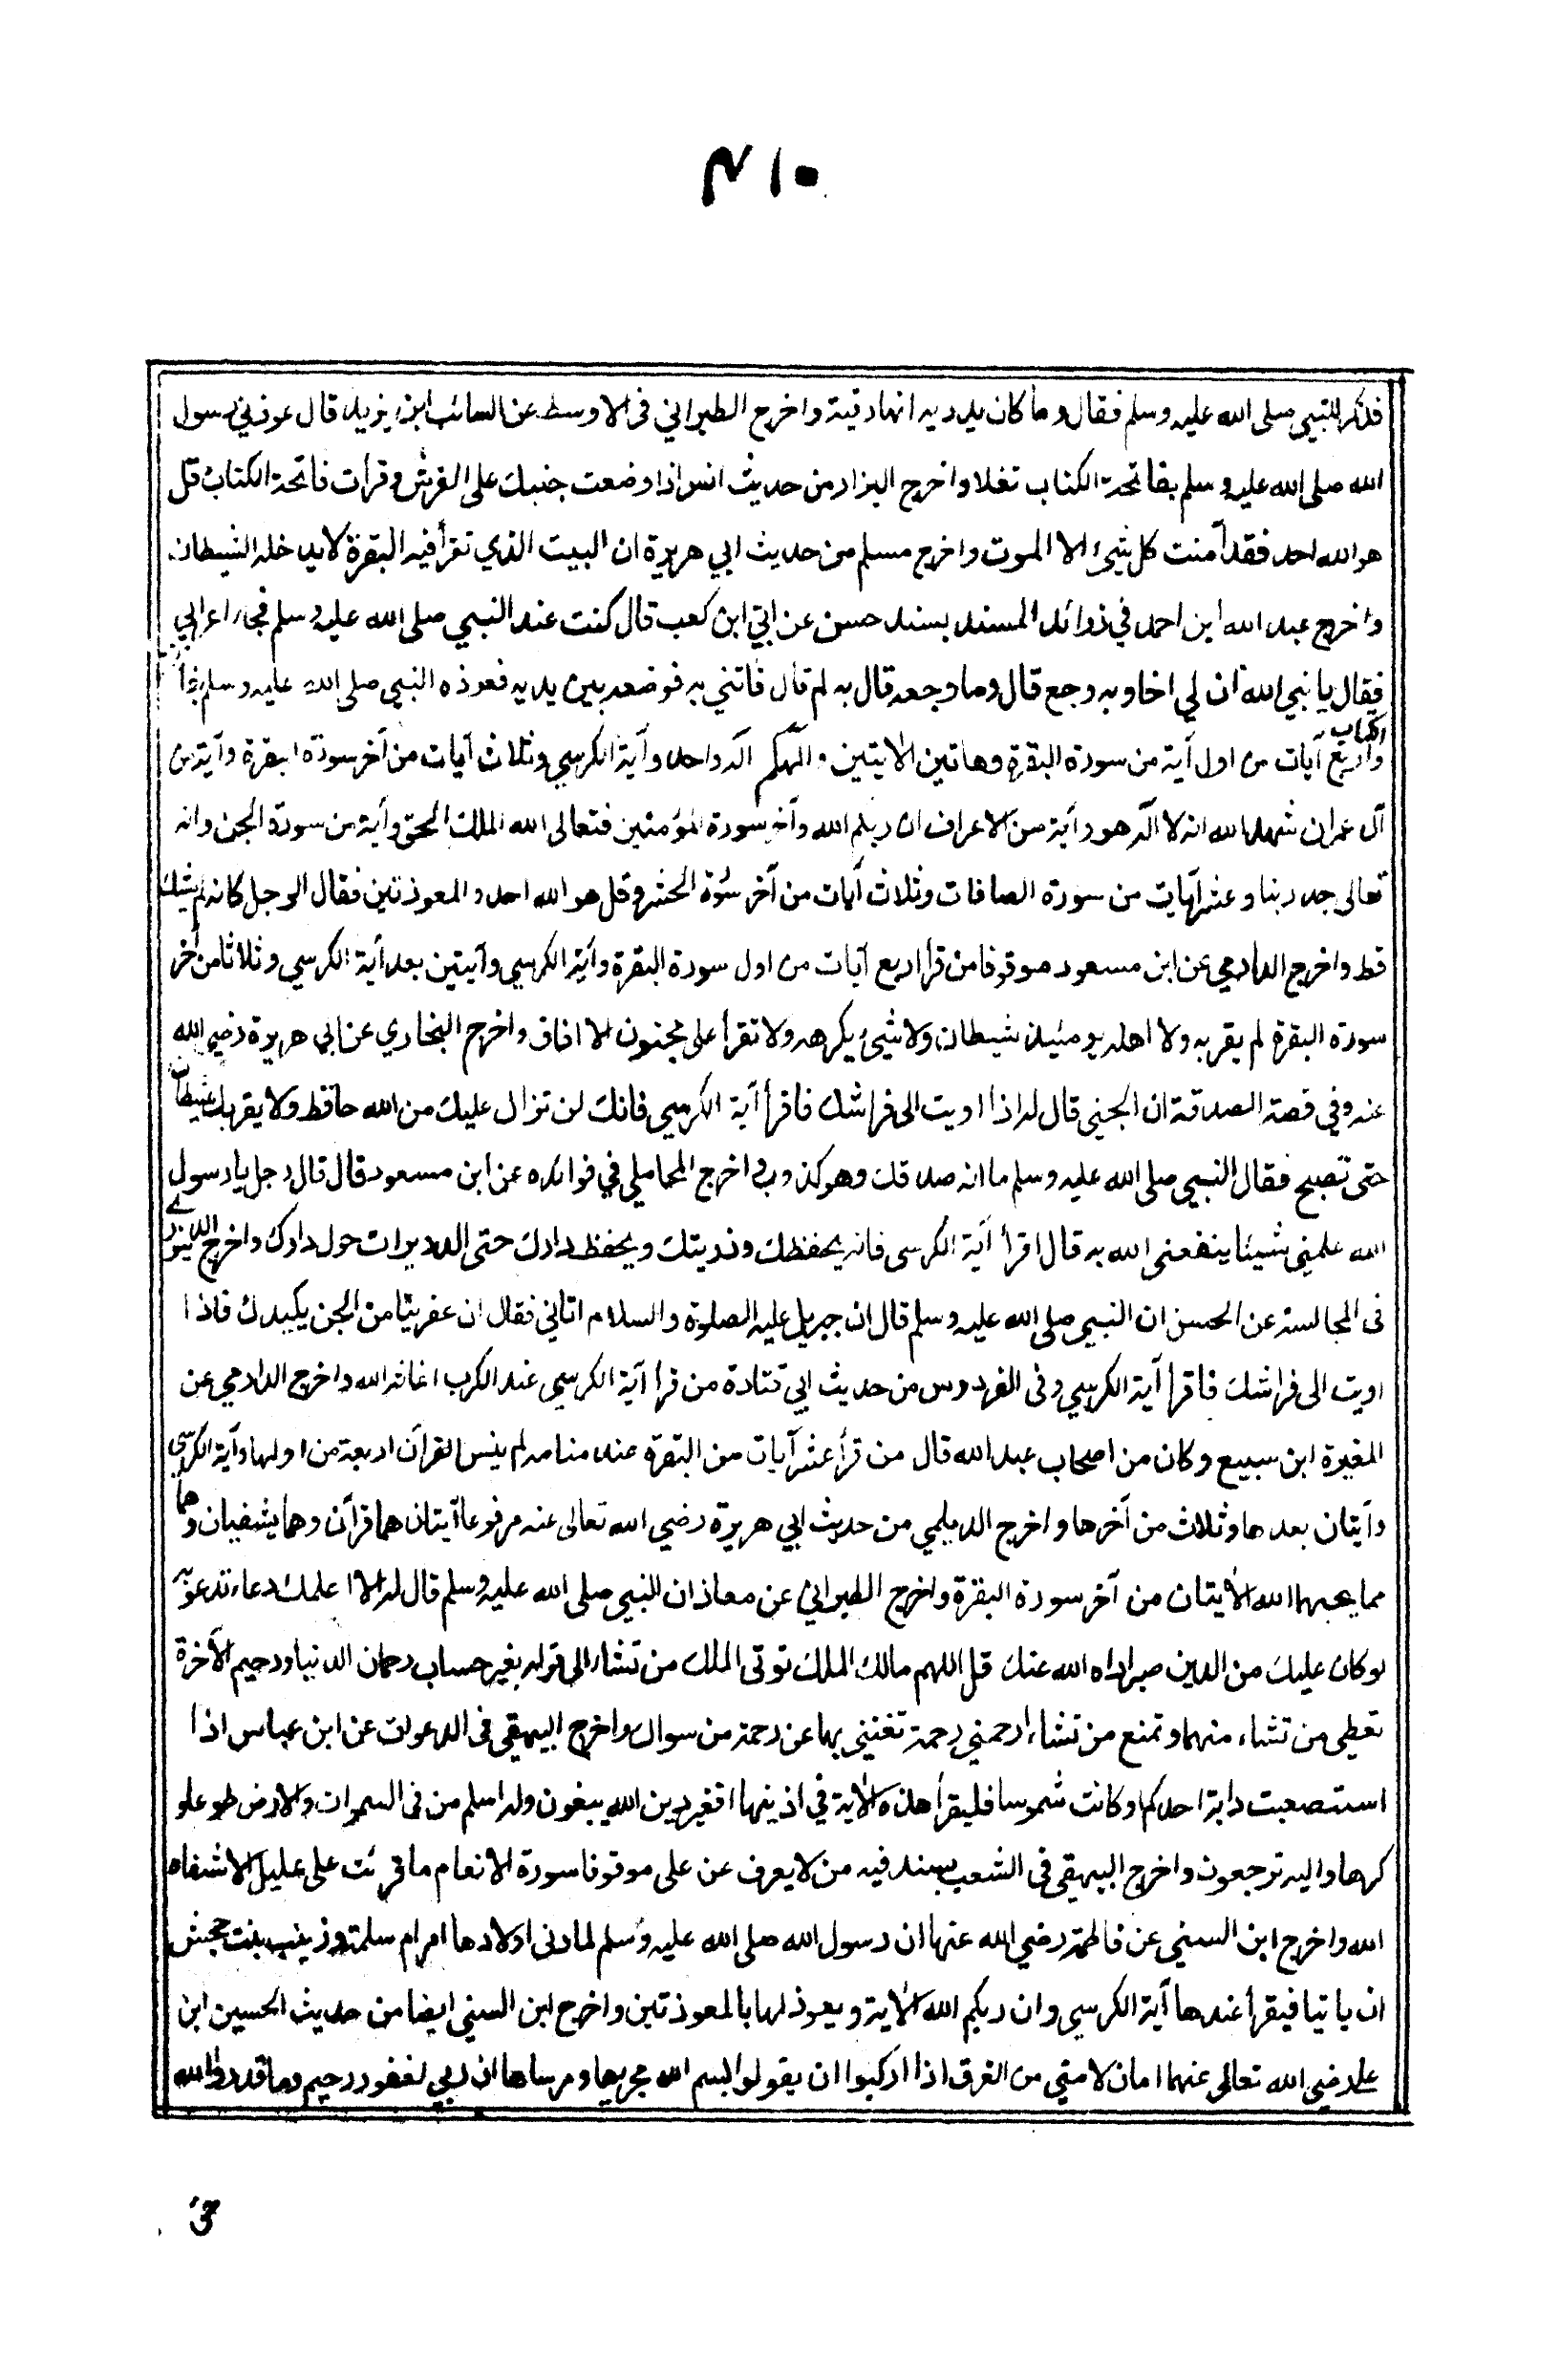 ٤١٠
فذكر للنبي صلى الله عليه وسلم فقال وما كان يدريه انها رقية واخرج الطبراني فى الاوسط عن السائب ابن يزيد قال عوذني رسول
الله صلى الله عليه وسلم بفاتحة الكتاب تفلا واخرج البزار من حديث انس اذا وضعت جنبك على الفرش وقرات فاتحة الكتاب وقل
هو الله احد فقد أمنت كل شئ الا الموت واخرج مسلم من حديث ابي هريرة ان البيت الذي تقرأ فيه البقرة لا يدخله الشيطان
واخرج عبد الله ابن احمد في زوائد المسند بسند حسن عن ابي ابن كعب قال كنت عند النبي صلى الله عليه وسلم فجاء اعرابي
فقال يا نبي الله ان لي اخا وبه وجع قال وما وجعه قال به لم قال فاتني به فوضعه بين يديه فعوذه النبي صلى الله عليه وسلم بفاتحة
الكتاب
واربع آيات من اول آية من سورة البقرة وهاتين الايتين والهكم اله واحد وآية الكرسي وثلاث آيات من آخر سورة البقرة وآية من
آل عمران شهد الله انه لا اله هو وآية من الاعراف ان ربكم الله وآخر سورة المؤمنين فتعالى الله الملك الحق وآية من سورة الجن وانه
تعالى جد ربنا وعشر آيات من سورة الصافات وثلاث آيات من آخر سورة الحشر وقل هو الله احد والمعوذتين فقال الرجل كانه لم يشك
قط واخرج الدارمي عن ابن مسعود موقوفا من قرأ اربع آيات من اول سورة البقرة وآية الكرسي وآيتين بعد آية الكرسي وثلاثا من أخر
سورة البقرة لم يقربه ولا اهله يومئيذ شيطان ولا شئ يكرهه ولا تقرأ على مجنون الا افاق واخرج البخاري عن ابي هريرة رضي الله
عنه وفي قصة الصدقة ان الجني قال له اذا اويت الى فراشك فاقرأ آية الكرسي فانك لن تزال عليك من الله حافظ ولا يقربك شيطان
حتى تصبح فقال النبي صلى الله عليه وسلم ما انه صدقك وهو كذوب واخرج المحاملي في فوائده عن ابن مسعود قال قال رجل يا رسول
الله علمني شيئا ينفعنى الله به قال اقرأ آية الكرسى فانه يحفظك وذريتك ويحفظ دارك حتى الدويرات حول دارك واخرج الدينوري
فى المجالسة عن الحسن ان النبي صلى الله عليه وسلم قال ان جبريل عليه الصلوة والسلام اتاني فقال ان عفريتا من الجن يكيدك فاذا
اويت الى فراشك فاقرا آية الكرسي وفى الفردوس من حديث ابي قتادة من قرا آية الكرسي عند الكرب اغاثه الله واخرج الدارمي عن
المغيرة ابن سبيع وكان من اصحاب عبد الله قال من قرأ عشر آيات من البقرة عند منامه لم ينس القرآن اربعة من اولها وآية الكرسي
وآيتان بعدها وثلاث من آخرها واخرج الديلمي من حديث ابي هريرة رضي الله تعالى عنه مرفوعا آيتان هما قرآن وهما يشفيان وهما
مما يحبهما الله الأيتان من آخر سورة البقرة واخرج الطبراني عن معاذ ان النبي صلى الله عليه وسلم قال له الا اعلمك دعاء تدعو به
لو كان عليك من الدين صبر اداه الله عنك قل اللهم مالك الملك توتى الملك من تشاء الى قوله بغير حساب رحمان الدنيا ورحيم الآخرة
تعطي من تشاء منهما وتمنع من تشاء ارحمني رحمة تغنيني بها عن رحمة من سواك واخرج البيهقي فى الدعوات عن ابن عباس اذا
استصعبت دابة احدكم او كانت شموسا فليقرأ هذه الاية في اذنيها افغير دين الله يبغون وله اسلم من فى السموات والارض طوعا و
كرها واليه ترجعون واخرج البيهقي فى الشعب بسند فيه من لا يعرف عن على موقوفا سورة الانعام ما قرئت على عليل الا شفاه
الله واخرج ابن السني عن فاطمة رضي الله عنها ان رسول الله صلى الله عليه وسلم لما دنى اولادها امر ام سلمة وزينب بنت جحش
ان ياتيا فيقرأ عندها آية الكرسي وان ربكم الله الأية ويعوذلها بالمعوذتين واخرج ابن السني ايضا من حديث الحسين ابن
على رضي الله تعالى عنهما امان لامتي من الغرق اذا اركبوا ان يقولوا بسم الله مجريها ومرساها ان ربي لغفور رحيم وما قدروا الله